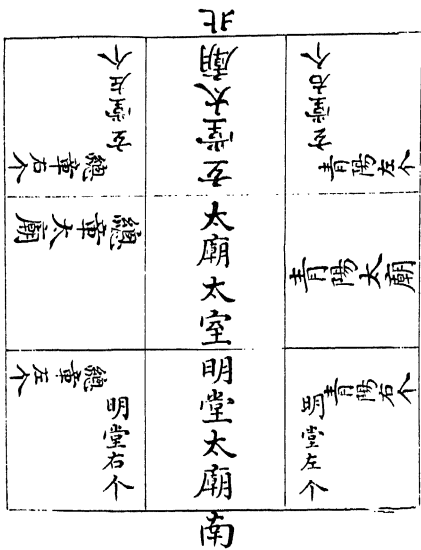 北
玄堂右个
青陽左个
玄堂太廟
玄堂左个
總章右个
青陽太廟
太廟太室
總章太廟
青陽右个
明堂左个
明堂太廟
總章左个
明堂右个
南